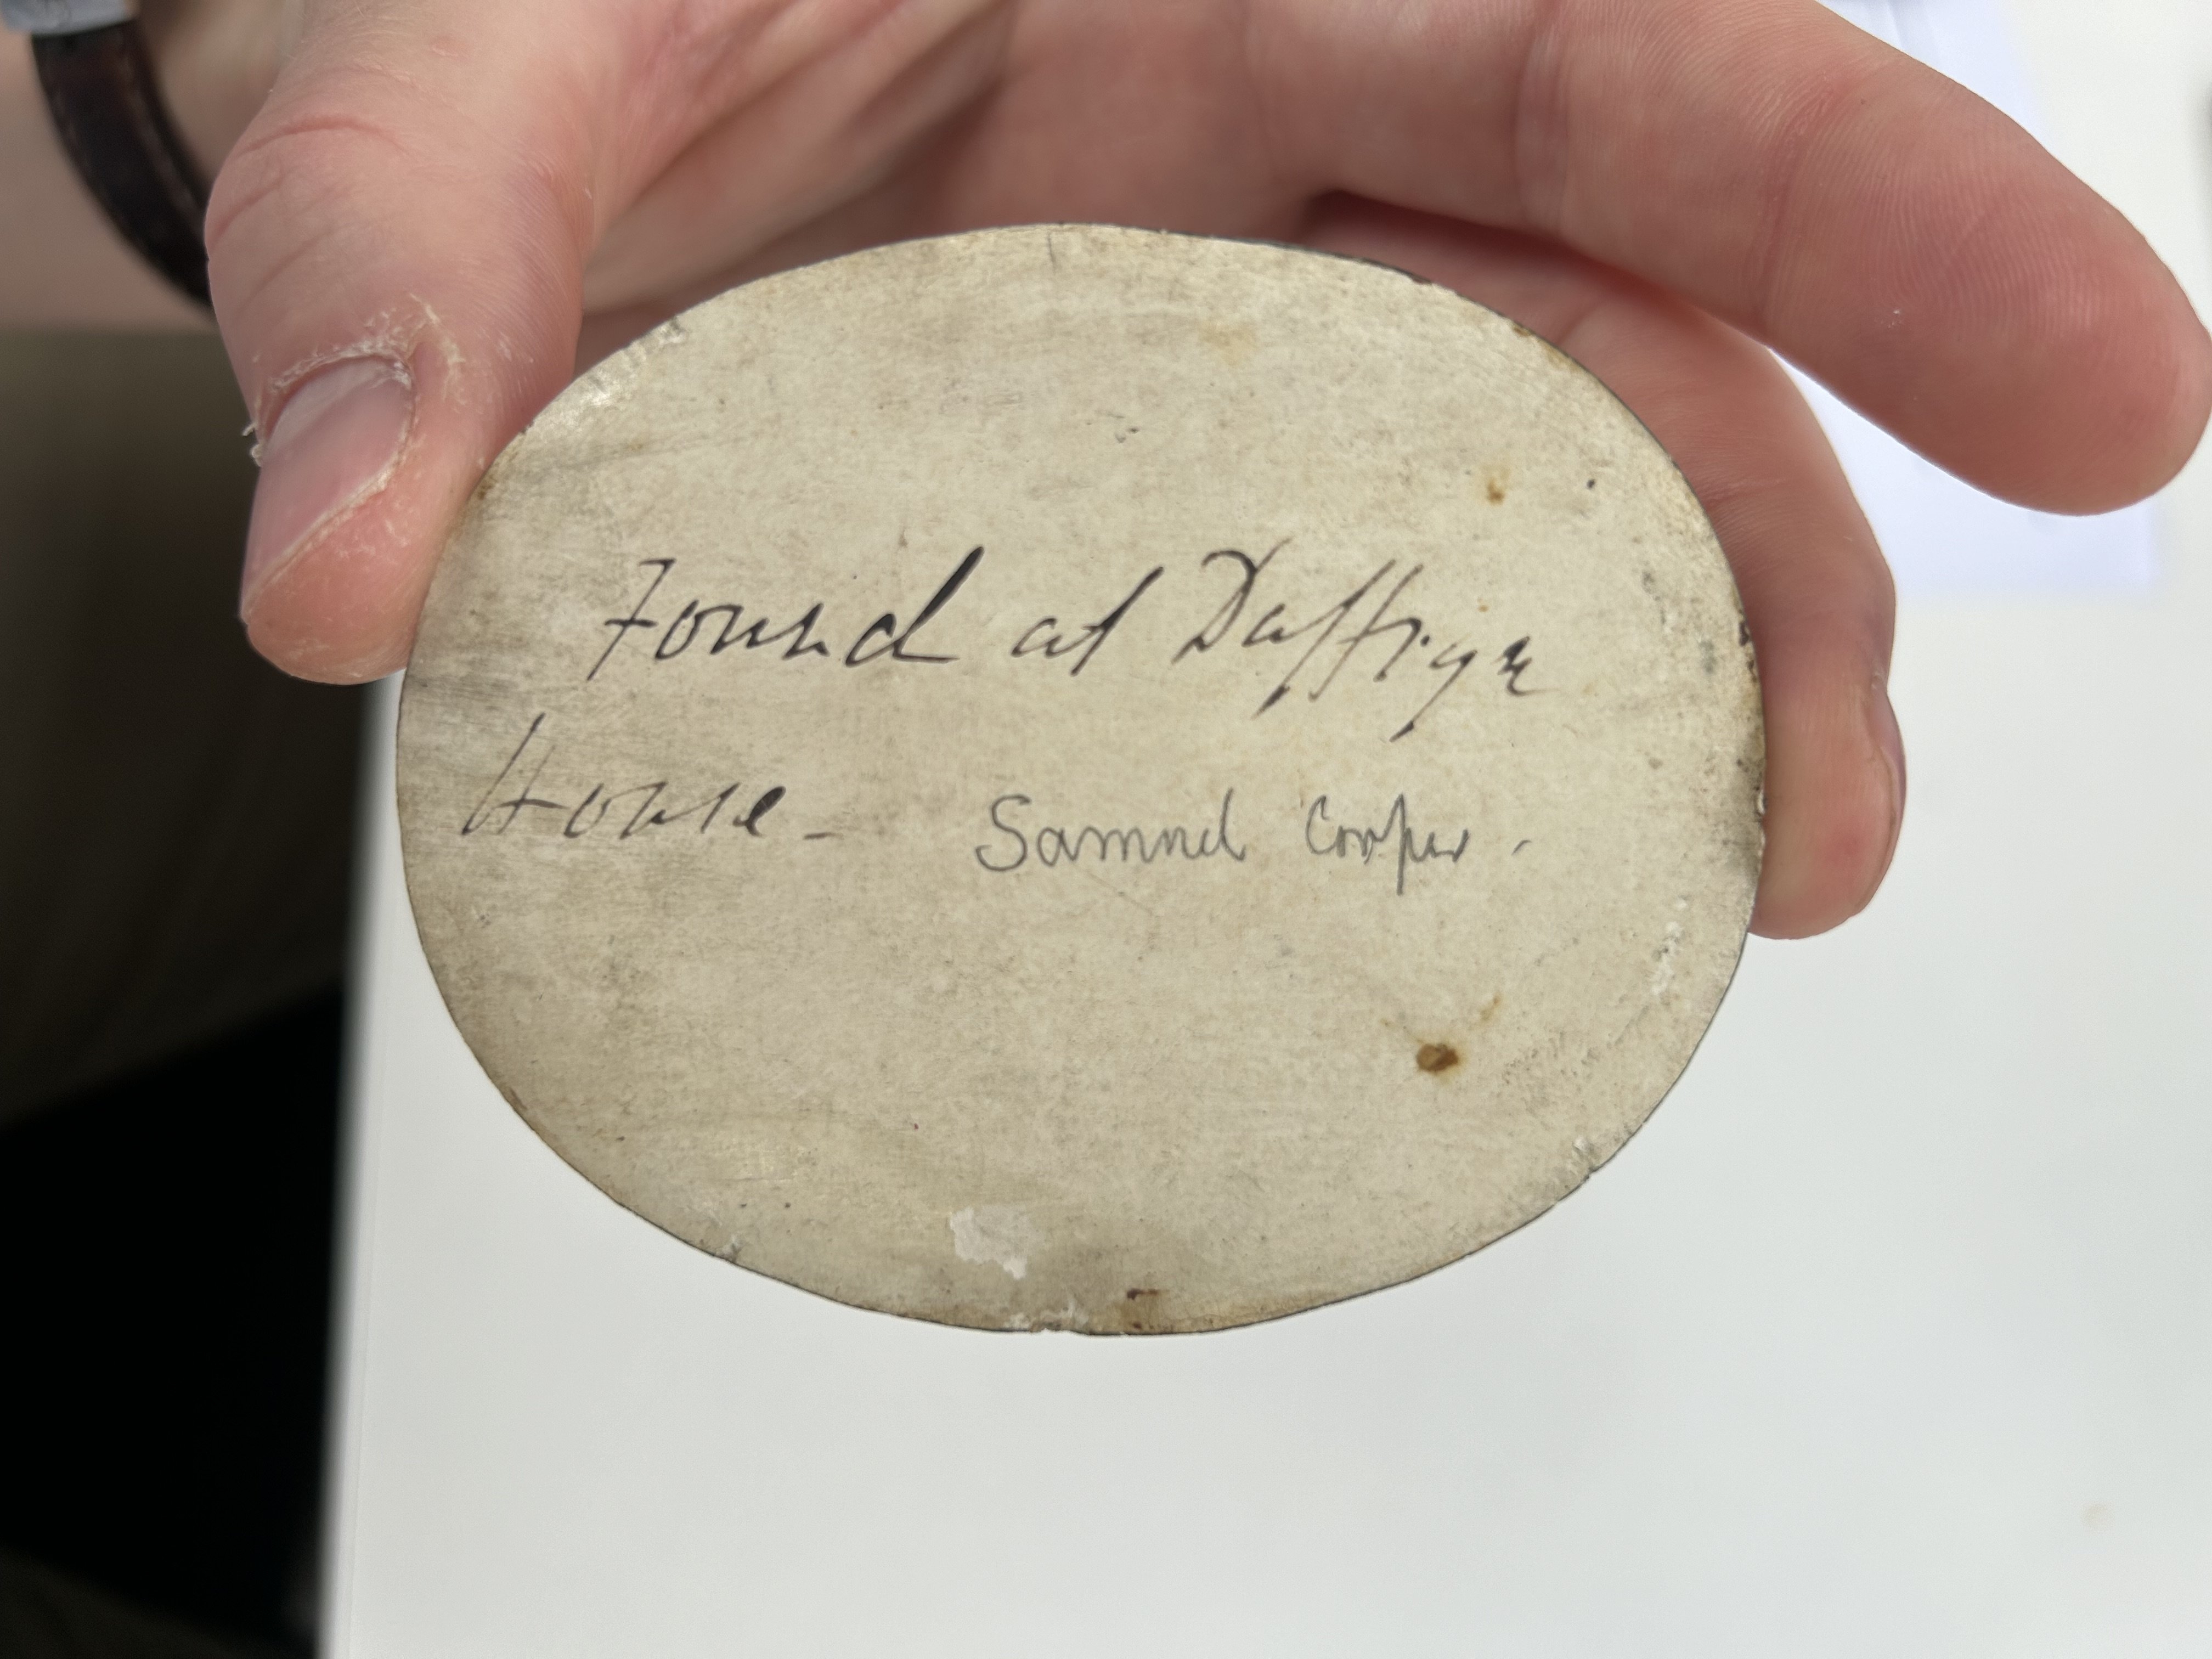 Found at
House - Samuel Cooper.